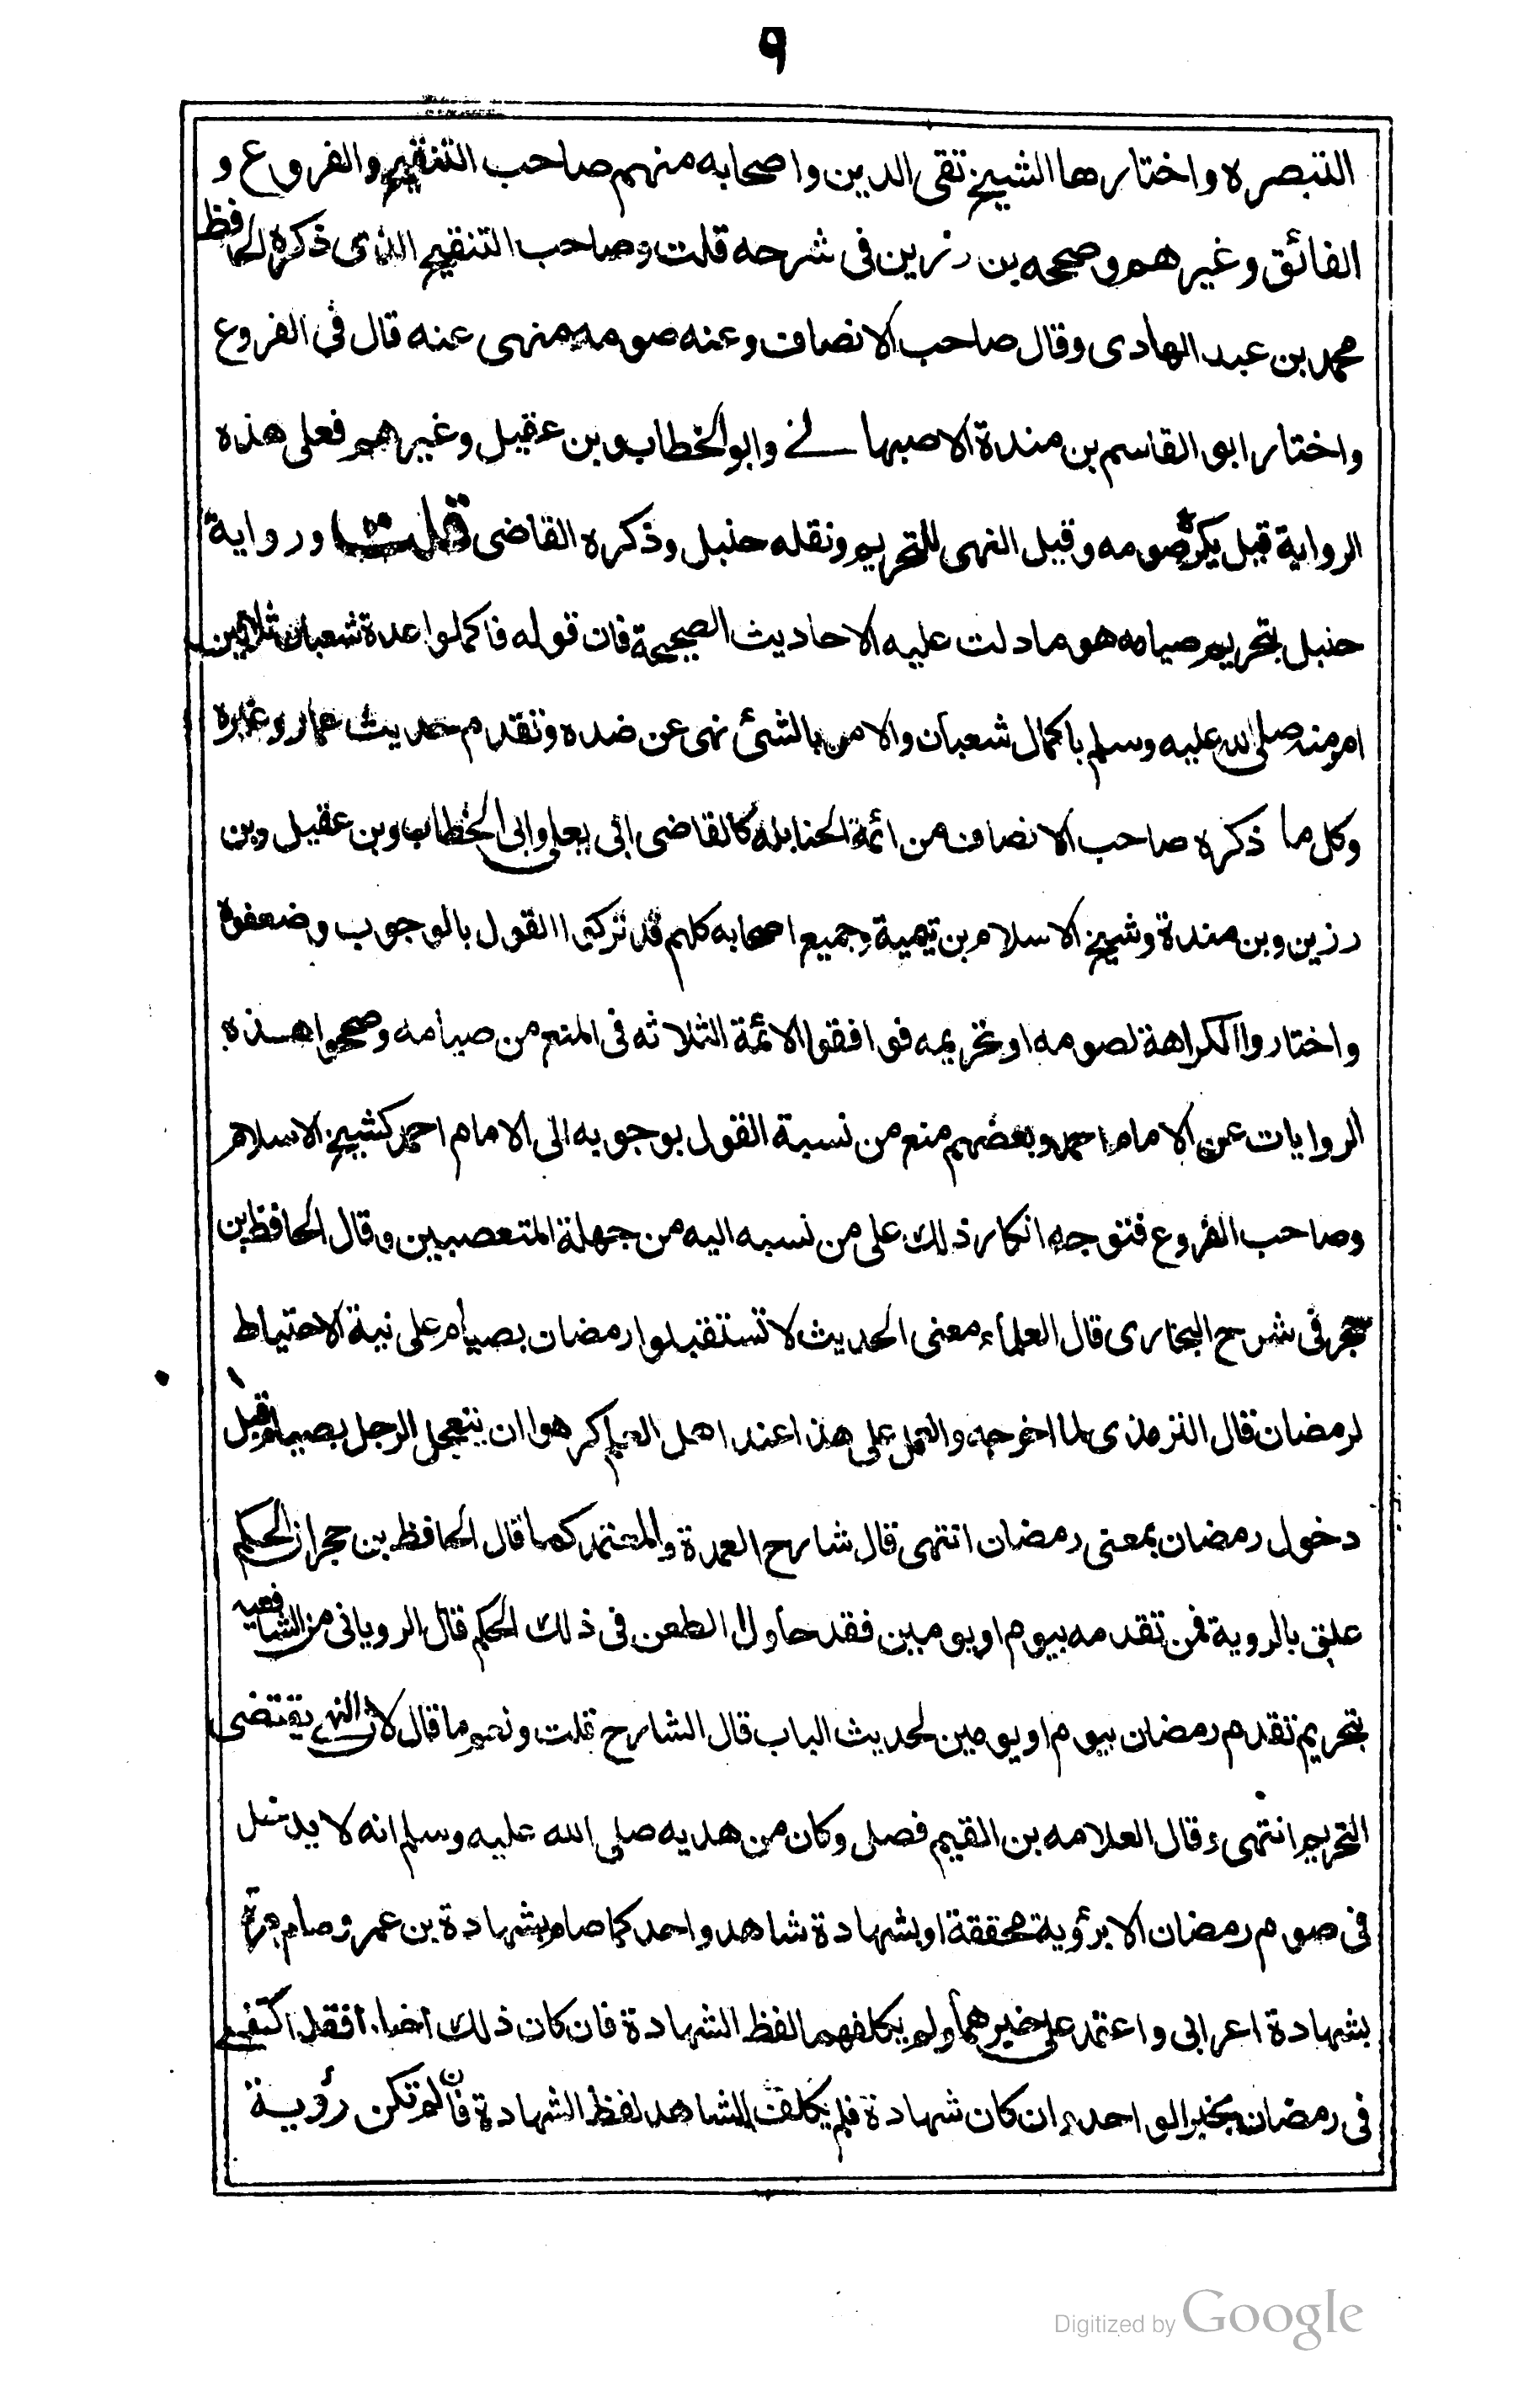 ٩
التبصره واختارها الشيخ تقى الدين واصحابه منهم صاحب التنقيح والفروع و
الفائق وغيرهم وصححه بن رزين فى شرحه قلت وصاحب التنقيح الذى ذكره الحافظ
محمد بن عبد الهادى وقال صاحب الانصاف وعنه صومه منهى عنه قال فى الفروع
واختار ابو القاسم بن مندة الاصبهانے وابو الخطاب وبن عقيل وغيرهم فعلى هذه
الرواية قيل يكره صومه وقيل النهى للتحريم ونقله حنبل وذكره القاضى قلت ورواية
حنبل بتحريم صيامه هو مادلت عليه الاحاديث الصحيحة فان قوله فاكملوا عدة شعبان ثلاثين
امر منه صلى الله عليه وسلم باكمال شعبان والامر بالشئ نهى عن ضده وتقدم حديث عمار وغيره
وكل ما ذكره صاحب الانصاف من ائمة الحنابله كالقاضى ابى يعلى وابى الخطاب وبن عقيل وبن
رزين وبن مندة وشيخ الاسلام بن تيمية وجميع اصحابه كلهم قد تركوا القول بالوجوب وضعفوه
واختاروا الكراهة لصومه او تحريمه فوافقوا الائمة الثلاثه فى المنع من صيامه وصححوا هذه
الروايات عن الامام احمد وبعضهم منع من نسبة القول بوجوبه الى الامام احمد كشيخ الاسلام
وصاحب الفروع فتوجه انكار ذلك على من نسبه اليه من جهلة المتعصبين وقال الحافظ بن
حجر فى شرح البخارى قال العلماء معنى الحديث لا تستقبلوا رمضان بصيام على نية الاحتياط
لرمضان قال الترمذى لما اخرجه والعمل على هذا عند اهل العلم كرهوا ان يتعجل الرجل بصيام قبل
دخول رمضان بمعنى رمضان انتهى قال شارح العمدة والمعتمد كما قال الحافظ بن حجر ان الحكم
علق بالروية فمن تقدمه بيوم او يومين فقد حاول الطعن فى ذلك الحكم قال الرويانى من الشافعيه
بتحريم تقدم رمضان بيوم او يومين لحديث الباب قال الشارح قلت ونعم ما قال لان النهى يقتضى
التحريم انتهى وقال العلامه بن القيم فصل وكان من هديه صلى الله عليه وسلم انه لا يدخل
فى صوم رمضان الا برؤية محققة او بشهادة شاهد واحد كما صام بشهادة بن عمر وصام مرة
بشهادة اعرابى واعتمد على خبرهما ولم يكلفهما لفظ الشهادة فان كان ذلك اخبارا فقد اكتفى
فى رمضان بخبر الواحد وان كان شهادة فلم يكلف الشاهد لفظ الشهادة فان لم تكن رؤية
Digitized by Google